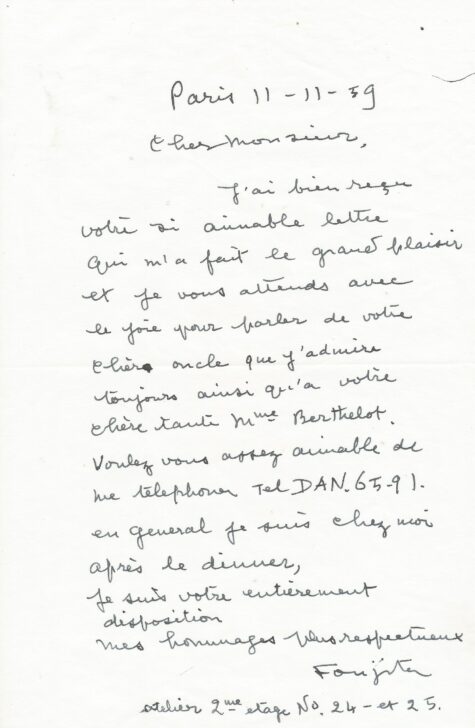 Paris 11-11-59
Cher Monsieur,
J'ai bien reçu
votre si aimable lettre
qui m'a fait le grand plaisir
et je vous attends avec
le joie pour parler de votre
chère oncle que j'admire
toujours ainsi qu'a votre
chère tante Mme Berthelot.
Voulez vous assez aimable de
me telephoner Tel DAN. 65-91.
en general je suis chez moi
après le dinner,
je suis votre entièrement
disposition
mes hommages plus respectueux
Foujita
atelier 2me etage No. 24 - et 25.